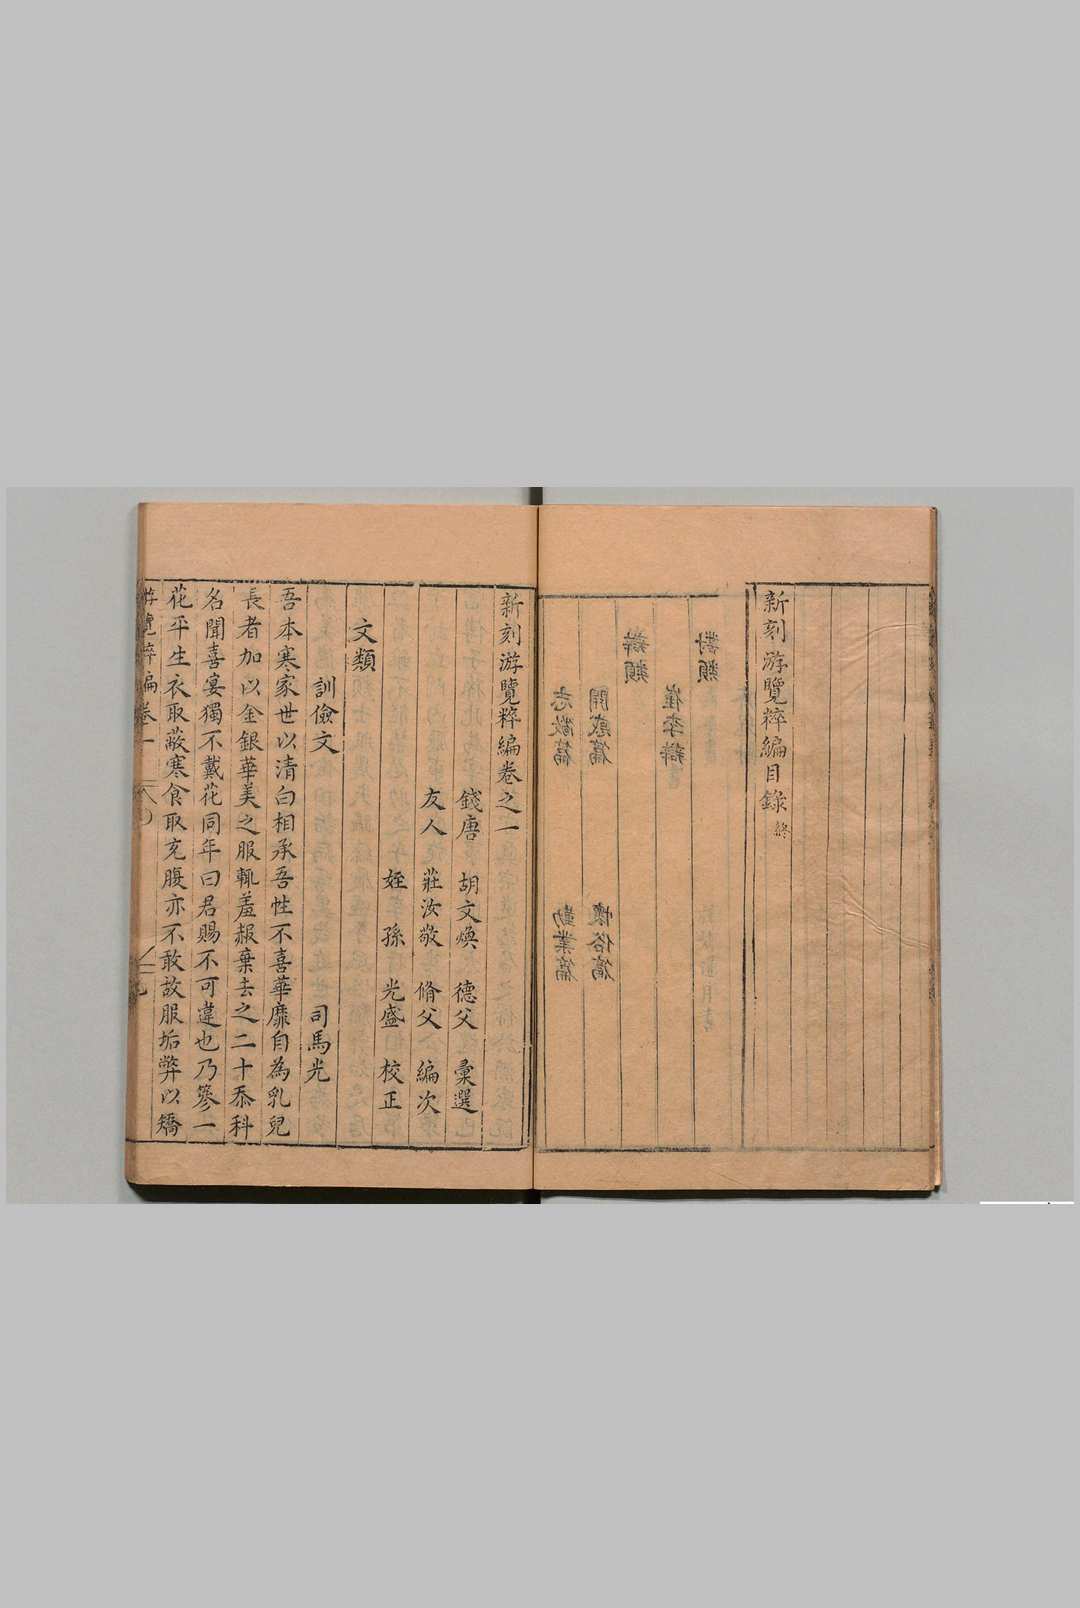 新刻游覽粹編目錄終
新刻游覽粹編卷之一
錢唐 胡文煥 德父 彙選
友人 莊汝敬 脩父 編次
姪孫 光盛 校正
文類
訓儉文 司馬光
吾本寒家世以清白相承吾性不喜華靡自為乳兒
長者加以金銀華美之服輒羞赧棄去之二十忝科
名聞喜宴獨不戴花同年曰君賜不可違也乃簪一
花平生衣取蔽寒食取充腹亦不敢故服垢弊以矯
游覽粹編卷一